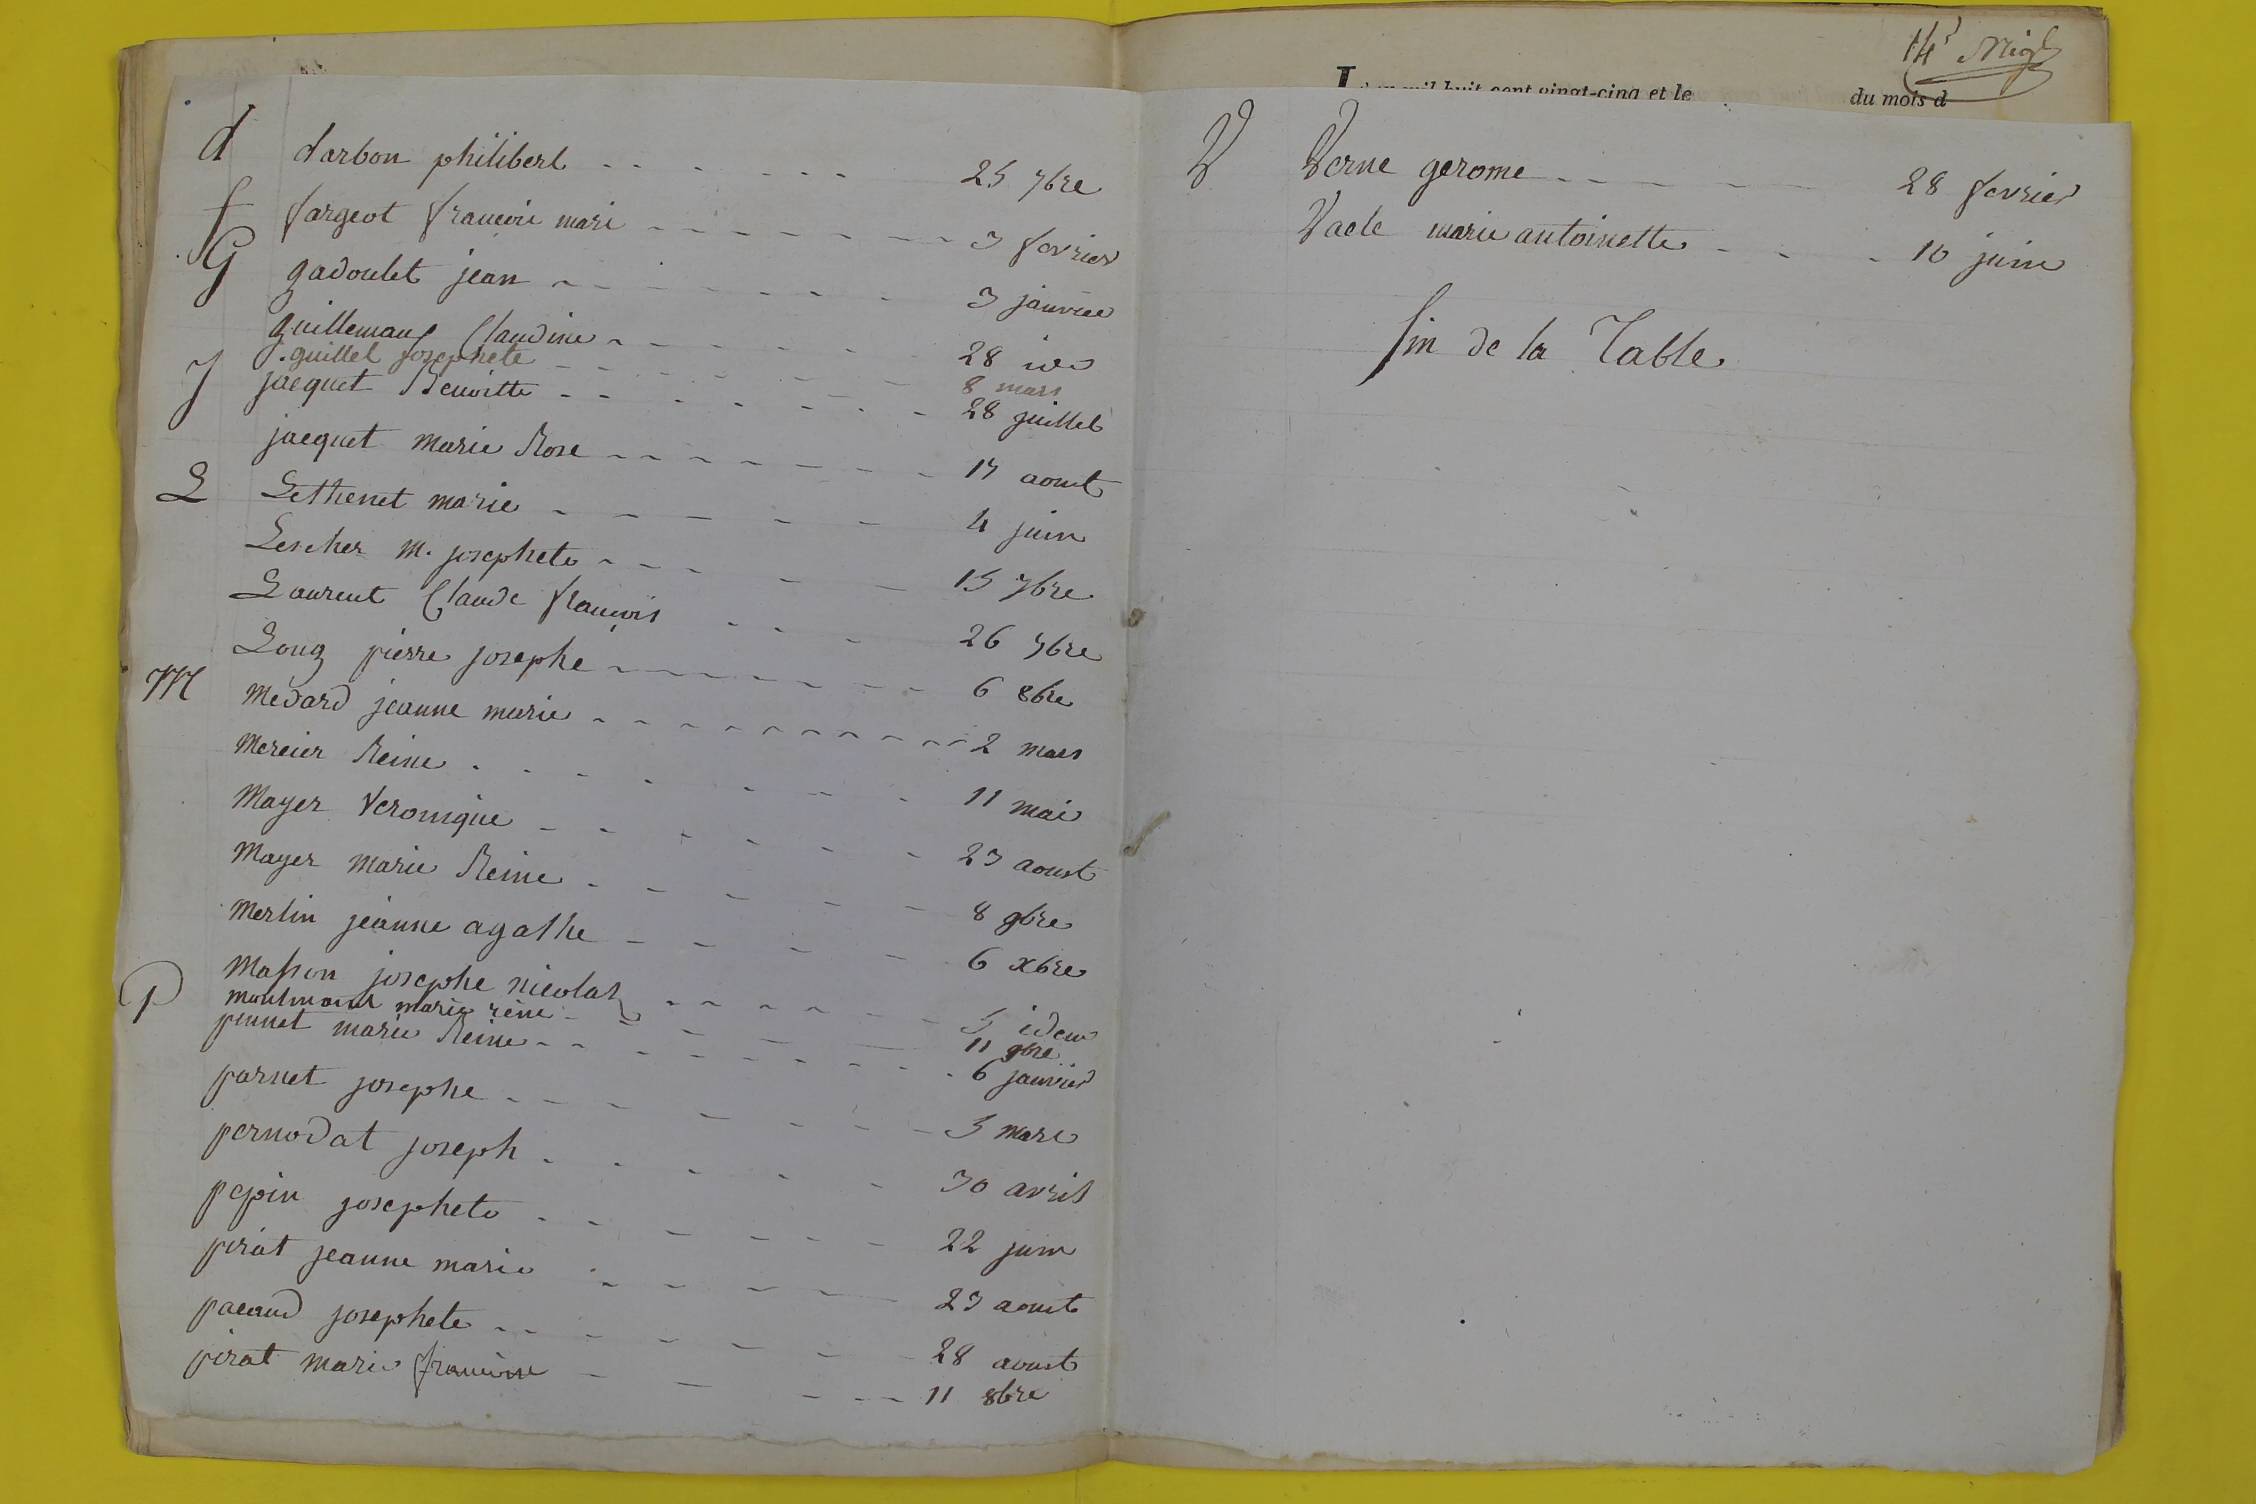 d darbon philibert 25 7bre
f fargeot francois mari 3 fevrier
G gadoulet jean 3 janvier
guillemaux Claudine 28 id
guillet josephete 8 mars
J jacquet Benoitte 28 juillet
jacquet marie Rose 17 aoust
L Lethenet marie 4 juin
Lescher m. josephete 15 7bre
Laurent Claude francois 26 7bre
Long pierre josephe 6 8bre
M medard jeanne marie 2 mars
mercier Reine 11 mai
mayer Veronique 23 aoust
mayer marie Reine 8 9bre
merlin jeanne agathe 6 xbre
masson josephe nicolas 5 idem
marie reine 11 9bre
P pennet marie Reine 6 janvier
parnet josephe 5 mars
pernodat joseph 30 avril
pepin josephete 22 juin
pirat jeanne marie 23 aoust
pacaud josephete 28 aoust
pirat marie francoise 11 8bre
14e
L'an mil huit cent vingt-cinq et le du mois d
V Verne gerome 28 fevrier
Vacle marie antoinette 10 juin
fin de la Table